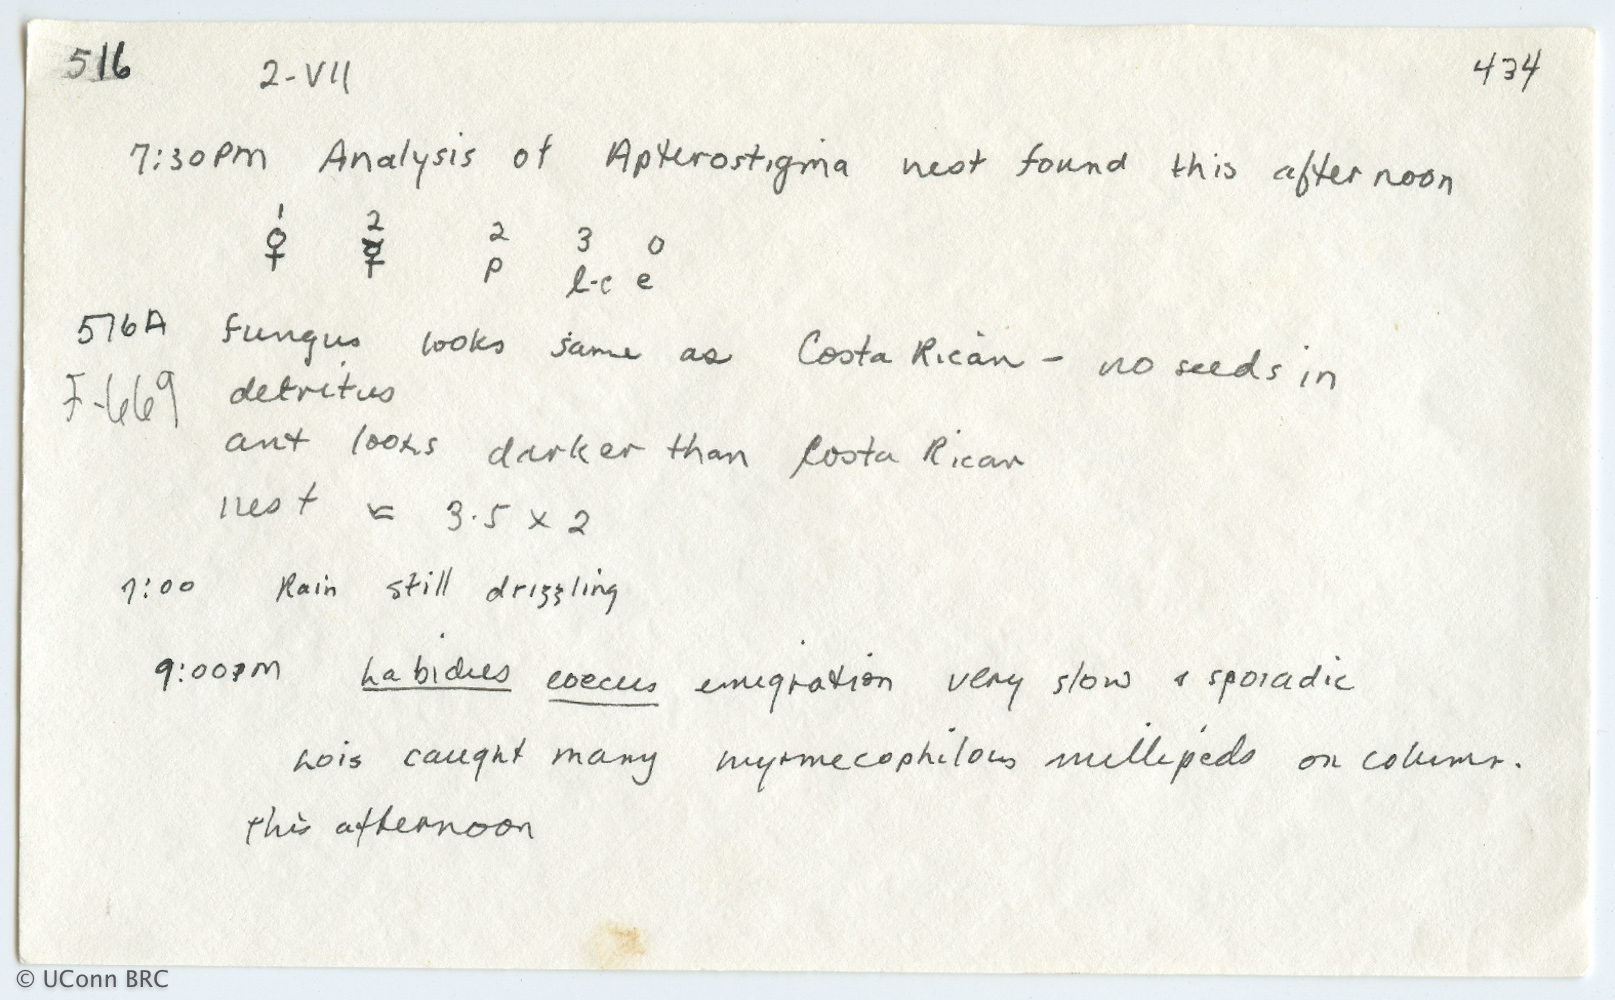 516 2-VII 434
7:30PM Analysis of Apterostigma nest found this afternoon
1 2 2 3 0
♀ ☿ p l-c e
516A fungus looks same as Costa Rican - no seeds in
F-669 detritus
ant looks darker than Costa Rican
nest ≈ 3.5 x 2
7:00 Rain still drizzling
9:00PM Labidus coecus emigration very slow & sporadic
Lois caught many myrmecophilous millipeds on column.
this afternoon
© UConn BRC